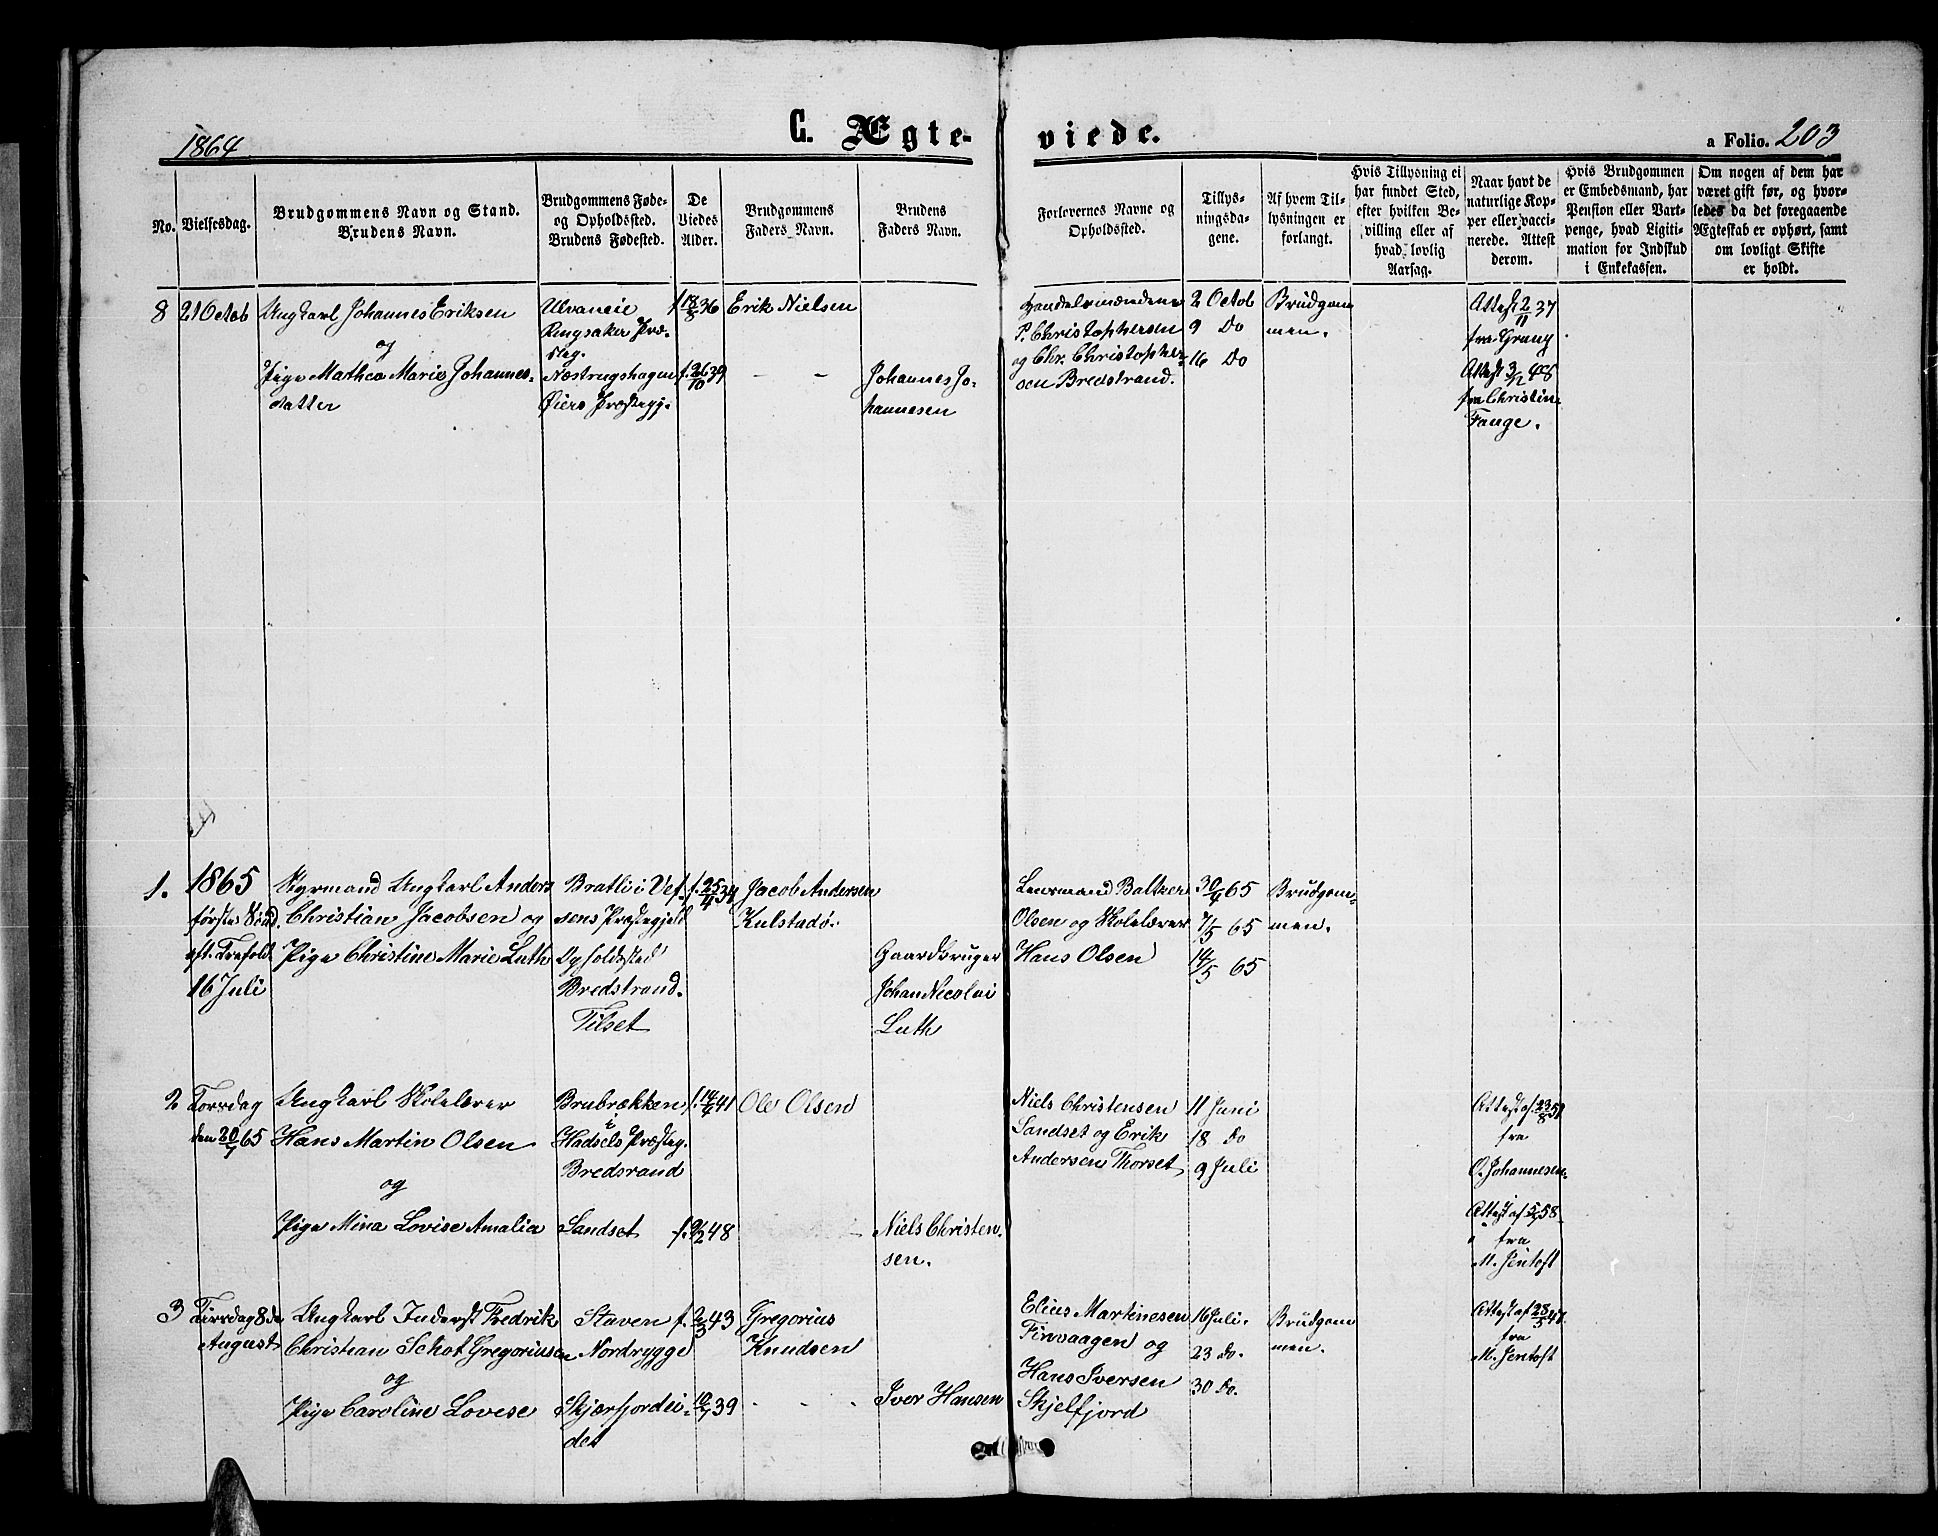 1864
C. Ægte-
viede.
a Folio. 203
No.
Vielsesdag.
Brudgommens Navn og Stand.
Brudens Navn.
Brudgommens Føde-
og Opholdssted.
Brudens Fødested.
De
Viedes
Alder.
Brudgommens
Faders Navn.
Brudens
Faders Navn.
Forlovernes Navne og
Opholdssted.
Tillys-
ningsda-
gene.
Af hvem Til-
lysningen er
forlangt.
Hvis Tillysning ei
har fundet Sted,
efter hvilken Be-
villing eller af
hvad lovlig
Aarsag.
Naar havt de
naturlige Kop-
per eller vacci-
nerede. Attest
derom.
Hvis Brudgommen
er Embedsmand, har
Pension eller Vart-
penge, hvad Ligiti-
mation for Indskud
i Enkekassen.
Om nogen af dem har
været gift før, og hvor-
ledes da det foregaaende
Ægteskab er ophørt, samt
om lovligt Skifte
er holdt.
8
21 Octob
Ungkarl Johannes Eriksen
og
Pige Mathea Marie Johannes-
datter
Ulvaneie
Ringsaker Præ-
steg.
Næstrugshagen
Øiers Præstegj.
f. 18/8 36
f. 26/10 39
Erik Nielsen
— —
Johannes Jo-
hannesen
Handelsmændene
P. Christophersen
og Chr. Christopher-
sen Bredstrand.
2 Octob
9 Do
16 Do
Brudgom
men.
Attest 2/11 37
fra Grung
Attest 3/12 48
fra Christin.
Fange.
1.
1865
første Sønd.
eft. Trefold.
16 Juli
Styrmand Ungkarl Anders
Christian Jacobsen og
Pige Christine Marie Luth
Bratli i Vef-
sens Præstegjeld
Opholdssted
Bredstrand.
Tilset
f. 25/4 34
Jacob Andersen
Kulstadø.
Gaardbruger
Johan Nicolai
Luth
Lensmand Baltzer
Olsen og Skolelærer
Hans Olsen
30/4 65
7/5 65
14/5 65
Brudgom-
men.
2
Torsdag
den 20/7 65
Ungkarl Skolelærer
Hans Martin Olsen
og
Pige Mina Lovise Amalia
Brubrækken
i
Hadsels Præsteg.
Bredsrand
Sandset
41
f. 9/2 48
Ole Olsen
Niels Christen-
sen.
Niels Christensen
Sandset og Erik
Andersen Thorset
11 Juni
18 Do
9 Juli
Attest af 23/8 51
fra
O. Johannesen.
Attest af 5/5 58
fra
M. Jentoft
3
Tirsdag 8de
August
Ungkarl Inderst Fredrik
Christian Schot Gregoriusen
og
Pige Caroline Lovise
Staven
Nordrygge
Skjærfjordei-
det
f. 2/3 43
10/7 39
Gregorius
Knudsen
- - -
Iver Hansen
Elius Martinesen
Finvaagen og
Hans Iversen
Skjelfjord
16 Juli.
23 Do.
30 Do.
Brudgom
men.
Attest af 28/5 47
fra
M. Jentoft